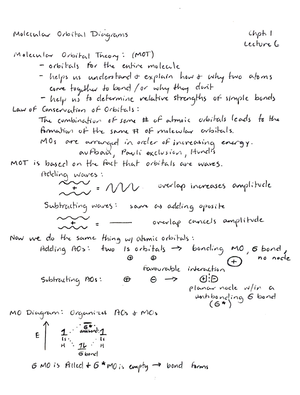 Molecular Orbital Diagrams
Chpt 1
Lecture 6
Molecular Orbital Theory: (MOT)
- orbitals for the entire molecule
- helps us understand & explain how & why two atoms
come together to bond / or why they don't
- help us to determine relative strengths of simple bonds
Law of Conservation of Orbitals:
The combination of some # of atomic orbitals leads to the
formation of the same # of molecular orbitals.
MOs are arranged in order of increasing energy.
aufbau, Pauli exclusion, Hund's
MOT is based on the fact that orbitals are waves.
Adding waves:
+ = overlap increases amplitude
Subtracting waves: same as adding oposite
+ = overlap cancels amplitude
Now we do the same thing w/ atomic orbitals:
Adding AOs: two 1s orbitals → bonding MO, σ bond,
no node
+ + +
favourable interaction
Subtracting AOs: + - → + -
planar node w/in a
antibonding σ bond
(σ*)
MO Diagram: Organized AOs & MOs
E
σ*
1s 1s
H H
σ bond
σ MO is filled & σ* MO is empty → bond forms